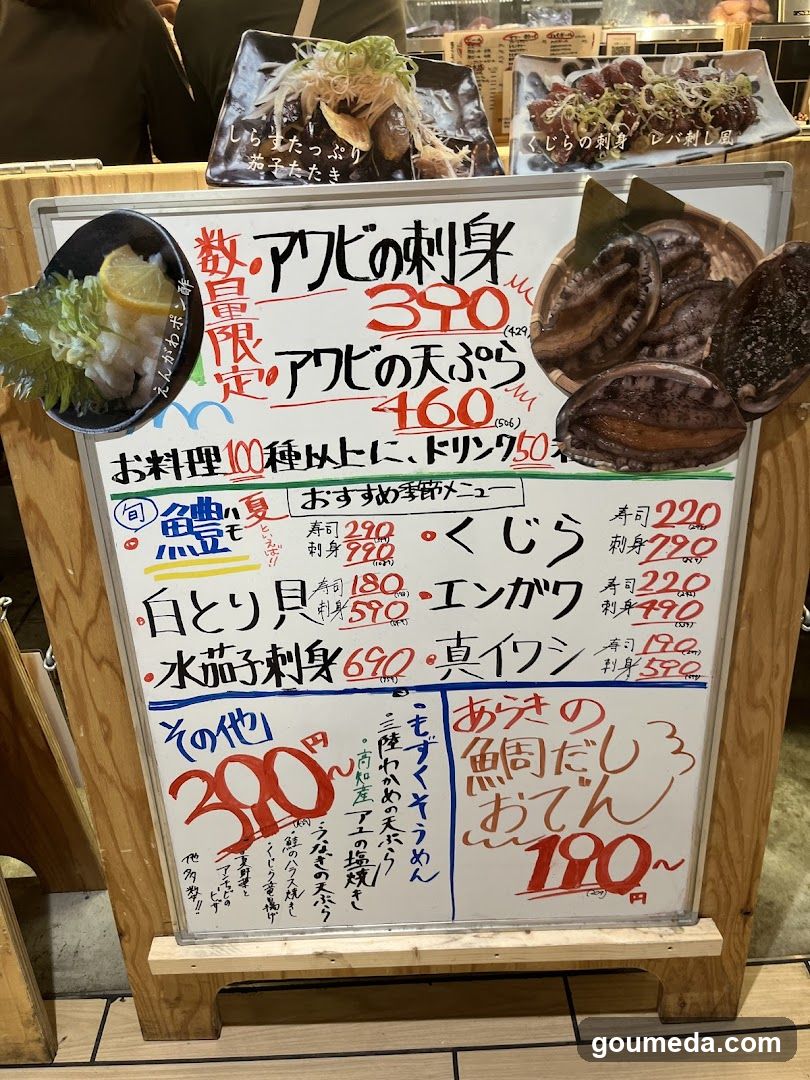 しらすたっぷり
茄子たたき
くじらの刺身 レバ刺し風
えんがわポン酢
数量限定
・アワビの刺身
390
(429)
・アワビの天ぷら
460
(506)
お料理100種以上に、ドリンク50
おすすめ季節メニュー
旬
・鱧 ハモ
夏といえば!!
寿司 290
刺身 990
・白とり貝
寿司 180
刺身 590
・水茄子刺身 690
・くじら
寿司 220
刺身 790
・エンガワ
寿司 220
刺身 490
・真イワシ
寿司 190
刺身 590
その他
390円~
・もずくそうめん
・三陸わかめの天ぷら
・高知産アユの塩焼き
・うなぎの天ぷら
・鮭のハラス焼き
・くじら竜田揚げ
・夏野菜と
アンチョビの
ピザ
他多数!!
あらきの
鯛だし
おでん
190~
円
goumeda.com